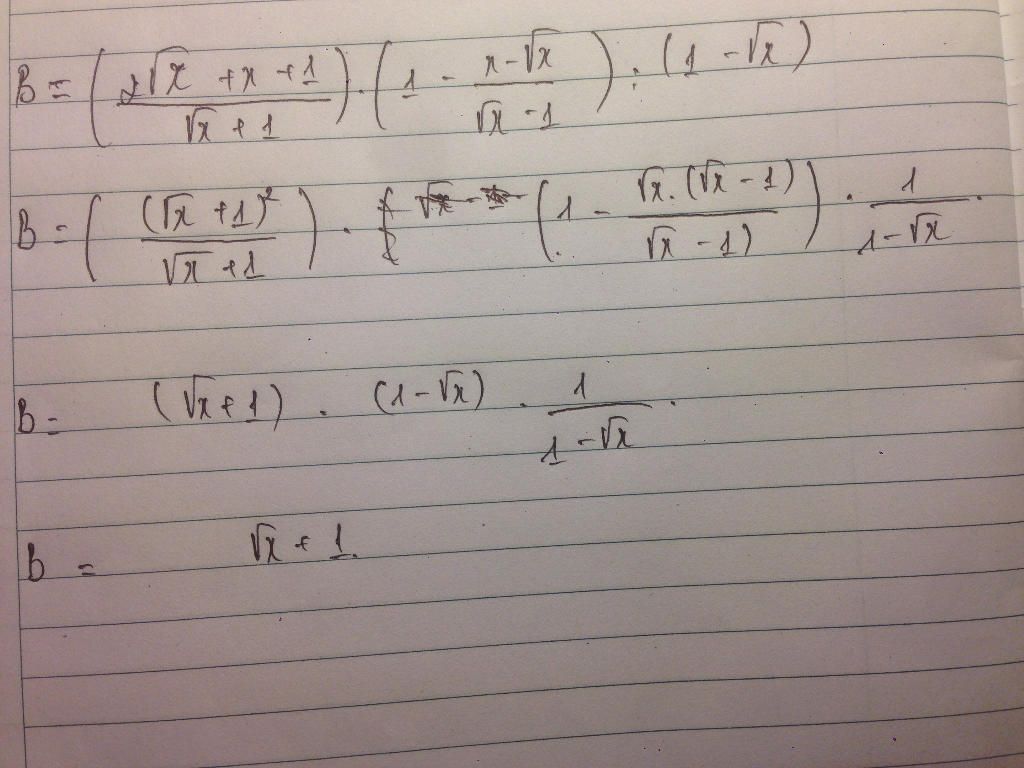 B = ( (2√x + x + 1) / (√x + 1) ) . ( 1 - (x - √x) / (√x - 1) ) : (1 - √x)
B = ( (√x + 1)² / (√x + 1) ) . ( 1 - √x . (√x - 1) / √x - 1) ) . 1 / (1 - √x) .
B = (√x + 1) . (1 - √x) . 1 / (1 - √x) .
B = √x + 1.